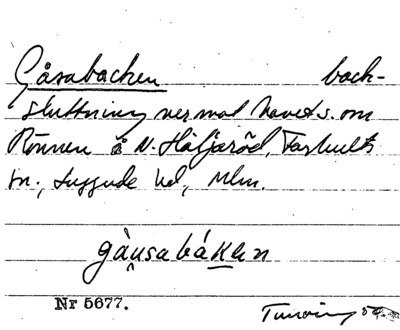 Gåsabacken back-
sluttning ner mot havet s. om
Rönnen å N. Häljaröd, Farhults
sn., Luggude hd, Mlm.
gàu̯sabákən
Nr 5677.